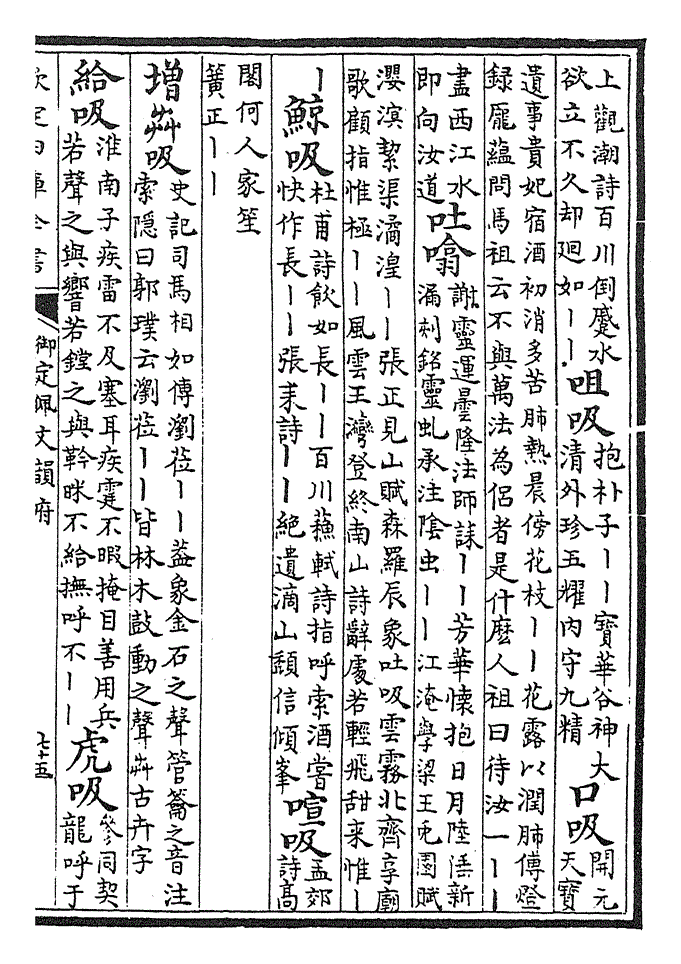 上觀潮詩百川倒蹙水
欲立不久却廻如丨丨
咀吸
抱朴子丨丨寶華谷神大
清外珍五耀內守九精
口吸
開元
天寶
遺事貴妃宿酒初消多苦肺熱晨傍花枝丨丨花露以潤肺傅燈
録龐藴問馬祖云不與萬法為侶者是什麽人祖曰待汝一丨丨
盡西江水
即向汝道
吐噏
謝靈運曇隆法師誄丨丨芳華懷抱日月陸倕新
漏刻銘靈虬承注陰虫丨丨江淹學梁王兎園賦
瀴溟絜渠潏湟丨丨張正見山賦森羅辰象吐吸雲霧北齊享廟
歌顧指惟極丨丨風雲王灣登終南山詩辭處若輕飛甜来惟丨
丨
鯨吸
杜甫詩飲如長丨丨百川蘓軾詩指呼索酒嘗
快作長丨丨張耒詩丨丨絶遺滴山頭信傾峯
喧吸
孟郊
詩高
閣何人家笙
簧正丨丨
增芔吸
史記司馬相如傳瀏莅丨丨葢象金石之聲管籥之音注
索隱曰郭璞云瀏莅丨丨皆林木鼓動之聲芔古卉字
給吸
淮南子疾雷不及塞耳疾霆不暇掩目善用兵
若聲之與響若鏜之與鞈眯不給撫呼不丨丨
虎吸
參同契
龍呼于
欽定四庫全書
御定佩文韻府
七十五